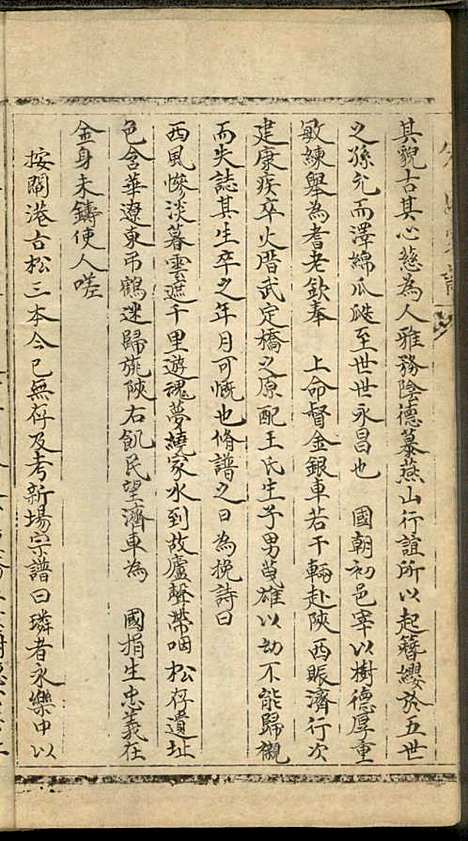 其貌古其心慈為人雅務陰德慕燕山行誼所以起簪纓於五世
之孫允而澤綿瓜瓞至世世永昌也　國朝初邑宰以樹德厚重
敏練舉為耆老欽奉　上命督金銀車若干輛赴陝西賑濟行次
建康疾卒火厝武定橋之原配王氏生子男茂雄以幼不能歸櫬
而失誌其生卒之年月可慨也修譜之日為挽詩曰
西風慘淡暮雲遮千里遊魂夢繞家水到故廬聲帶咽松存遺址
色含華遼東吊鶴迷歸旐陝右飢民望濟車為　國捐生忠義在
金身未鑄使人嗟
按閣港古松三本今已無存及考新場宗譜曰璘者永樂中以